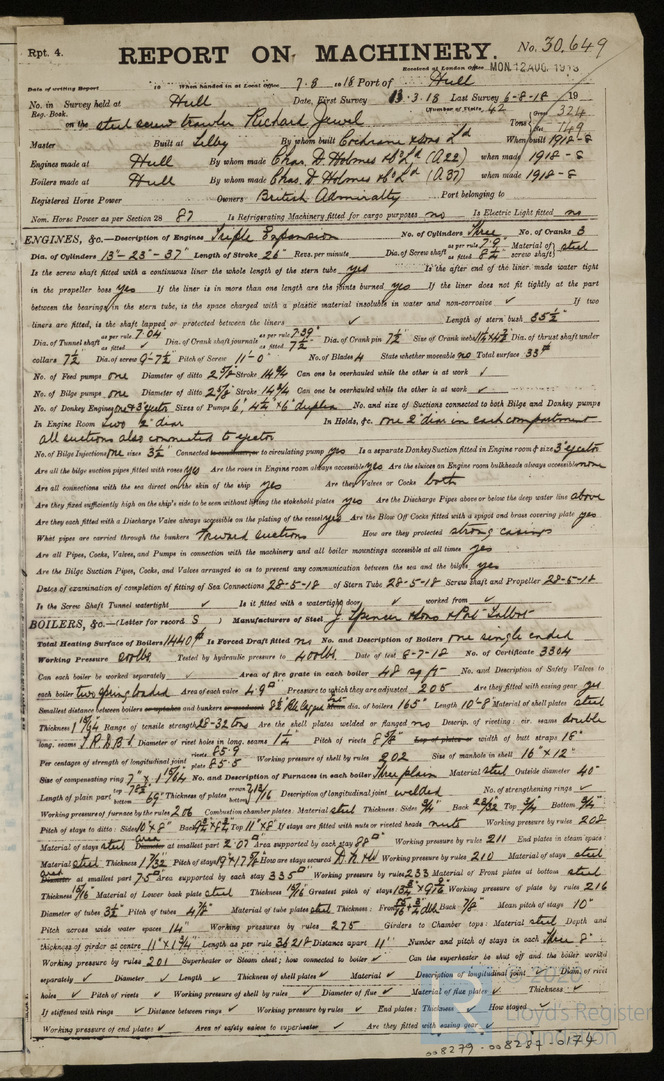 Rpt. 4.
REPORT ON MACHINERY.
No. 30,649
Received at London Office MON. 12 AUG. 1918
Date of writing Report 19 When handed in at Local Office 7.8 1918 Port of Hull
No. in Survey held at Hull Date, First Survey 13.3.18 Last Survey 6-8-18 19
Reg. Book. (Number of Visits 42
on the steel screw trawler Richard Jewel Tons Gross 324
Net 149
Master Built at Selby By whom built Cochrane & Sons Ld When built 1918-8
Engines made at Hull By whom made Chas. D. Holmes & Co Ld (A22) when made 1918-8
Boilers made at Hull By whom made Chas. D. Holmes & Co Ld (A37) when made 1918-8
Registered Horse Power Owners British Admiralty Port belonging to
Nom. Horse Power as per Section 28 87 Is Refrigerating Machinery fitted for cargo purposes no Is Electric Light fitted no
ENGINES, &c.—Description of Engines Triple Expansion No. of Cylinders Three No. of Cranks 3
Dia. of Cylinders 13"-23"-37" Length of Stroke 26" Revs. per minute Dia. of Screw shaft as per rule 7.9" as fitted 8¼" Material of screw shaft steel
Is the screw shaft fitted with a continuous liner the whole length of the stern tube yes Is the after end of the liner made water tight
in the propeller boss yes If the liner is in more than one length are the joints burned yes If the liner does not fit tightly at the part
between the bearings in the stern tube, is the space charged with a plastic material insoluble in water and non-corrosive ✓ If two
liners are fitted, is the shaft lapped or protected between the liners ✓ Length of stern bush 35½"
Dia. of Tunnel shaft as per rule 7.04 as fitted ✓ Dia. of Crank shaft journals as per rule 7.39" as fitted 7½" Dia. of Crank pin 7½" Size of Crank webs Dia. of thrust shaft under
collars 7½" Dia. of screw 9'-7½" Pitch of Screw 11'-0" No. of Blades 4 State whether moveable no Total surface 33
No. of Feed pumps one Diameter of ditto 2⅝" Stroke 14¾ Can one be overhauled while the other is at work ✓
No. of Bilge pumps one Diameter of ditto 2⅝" Stroke 14¾ Can one be overhauled while the other is at work ✓
No. of Donkey Engines one & 3" ejector Sizes of Pumps 6, 4¼ x 6" duplex No. and size of Suctions connected to both Bilge and Donkey pumps
In Engine Room two 2" diar In Holds, &c. one 2" diar in each compartment
all suctions also connected to ejector
No. of Bilge Injections one sizes 3½ Connected to condenser, or to circulating pump yes Is a separate Donkey Suction fitted in Engine room & size 3" ejector
Are all the bilge suction pipes fitted with roses yes Are the roses in Engine room always accessible yes Are the sluices on Engine room bulkheads always accessible none
Are all connections with the sea direct on the skin of the ship yes Are they Valves or Cocks both
Are they fixed sufficiently high on the ship's side to be seen without lifting the stokehold plates yes Are the Discharge Pipes above or below the deep water line above
Are they each fitted with a Discharge Valve always accessible on the plating of the vessel yes Are the Blow Off Cocks fitted with a spigot and brass covering plate yes
What pipes are carried through the bunkers forward suctions How are they protected strong casings
Are all Pipes, Cocks, Valves, and Pumps in connection with the machinery and all boiler mountings accessible at all times yes
Are the Bilge Suction Pipes, Cocks, and Valves arranged so as to prevent any communication between the sea and the bilges yes
Dates of examination of completion of fitting of Sea Connections 28-5-18 of Stern Tube 28-5-18 Screw shaft and Propeller 28-5-18
Is the Screw Shaft Tunnel watertight ✓ Is it fitted with a watertight door ✓ worked from ✓
BOILERS, &c.—(Letter for record S) Manufacturers of Steel J. Spencer & Sons & Port Talbot
Total Heating Surface of Boilers 1440 Is Forced Draft fitted no No. and Description of Boilers one single ended
Working Pressure 200lbs Tested by hydraulic pressure to 400lbs Date of test 8-7-18 No. of Certificate 3304
Can each boiler be worked separately ✓ Area of fire grate in each boiler 48 sq ft No. and Description of Safety Valves to
each boiler two spring loaded Area of each valve 4.9 Pressure to which they are adjusted 205 Are they fitted with easing gear yes
Smallest distance between boilers or uptakes and bunkers or woodwork dia. of boilers 165" Length 10'-8" Material of shell plates steel
Thickness Range of tensile strength 28-32 tons Are the shell plates welded or flanged no Descrip. of riveting: cir. seams double
long. seams T.R.D.B.S Diameter of rivet holes in long. seams 1¼" Pitch of rivets Lap of plates or width of butt straps 18"
Per centages of strength of longitudinal joint rivets 85.9 plate 85.5 Working pressure of shell by rules 202 Size of manhole in shell 16" x 12"
Size of compensating ring No. and Description of Furnaces in each boiler Three plain Material steel Outside diameter 40"
Length of plain part top 78½" bottom 69" Thickness of plates Description of longitudinal joint welded No. of strengthening rings ✓
Working pressure of furnace by the rules 206 Combustion chamber plates: Material steel Thickness: Sides ¾" Back Top ¾" Bottom ¾"
Pitch of stays to ditto: Sides 10" x 8" Back Top 11" x 8" If stays are fitted with nuts or riveted heads nuts Working pressure by rules 208
Material of stays steel Area at smallest part 2.07 Area supported by each stay 88 Working pressure by rules 211 End plates in steam space:
Material steel Thickness 1⅟32 Pitch of stays How are stays secured D.N.&W. Working pressure by rules 210 Material of stays steel
Area at smallest part Area supported by each stay 335 Working pressure by rules 233 Material of Front plates at bottom steel
Thickness 15/16" Material of Lower back plate steel Thickness 15/16" Greatest pitch of stays Working pressure of plate by rules 216
Diameter of tubes 3½" Pitch of tubes 4⅞" Material of tube plates steel Thickness: Front Back ⅞" Mean pitch of stays 10"
Pitch across wide water spaces 14" Working pressures by rules 275 Girders to Chamber tops: Material steel Depth and
thickness of girder at centre 11" x 1¼" Length as per rule Distance apart 11" Number and pitch of stays in each three 8"
Working pressure by rules 201 Superheater or Steam chest; how connected to boiler ✓ Can the superheater be shut off and the boiler worked
separately ✓ Diameter ✓ Length ✓ Thickness of shell plates ✓ Material ✓ Description of longitudinal joint ✓ Diam. of rivet
holes ✓ Pitch of rivets ✓ Working pressure of shell by rules ✓ Diameter of flue ✓ Material of flue plates ✓ Thickness ✓
If stiffened with rings ✓ Distance between rings ✓ Working pressure by rules ✓ End plates: Thickness ✓ How stayed ✓
Working pressure of end plates ✓ Area of safety valves to superheater ✓ Are they fitted with easing gear ✓
Lloyd's Register
Foundation
008279-008287-0174